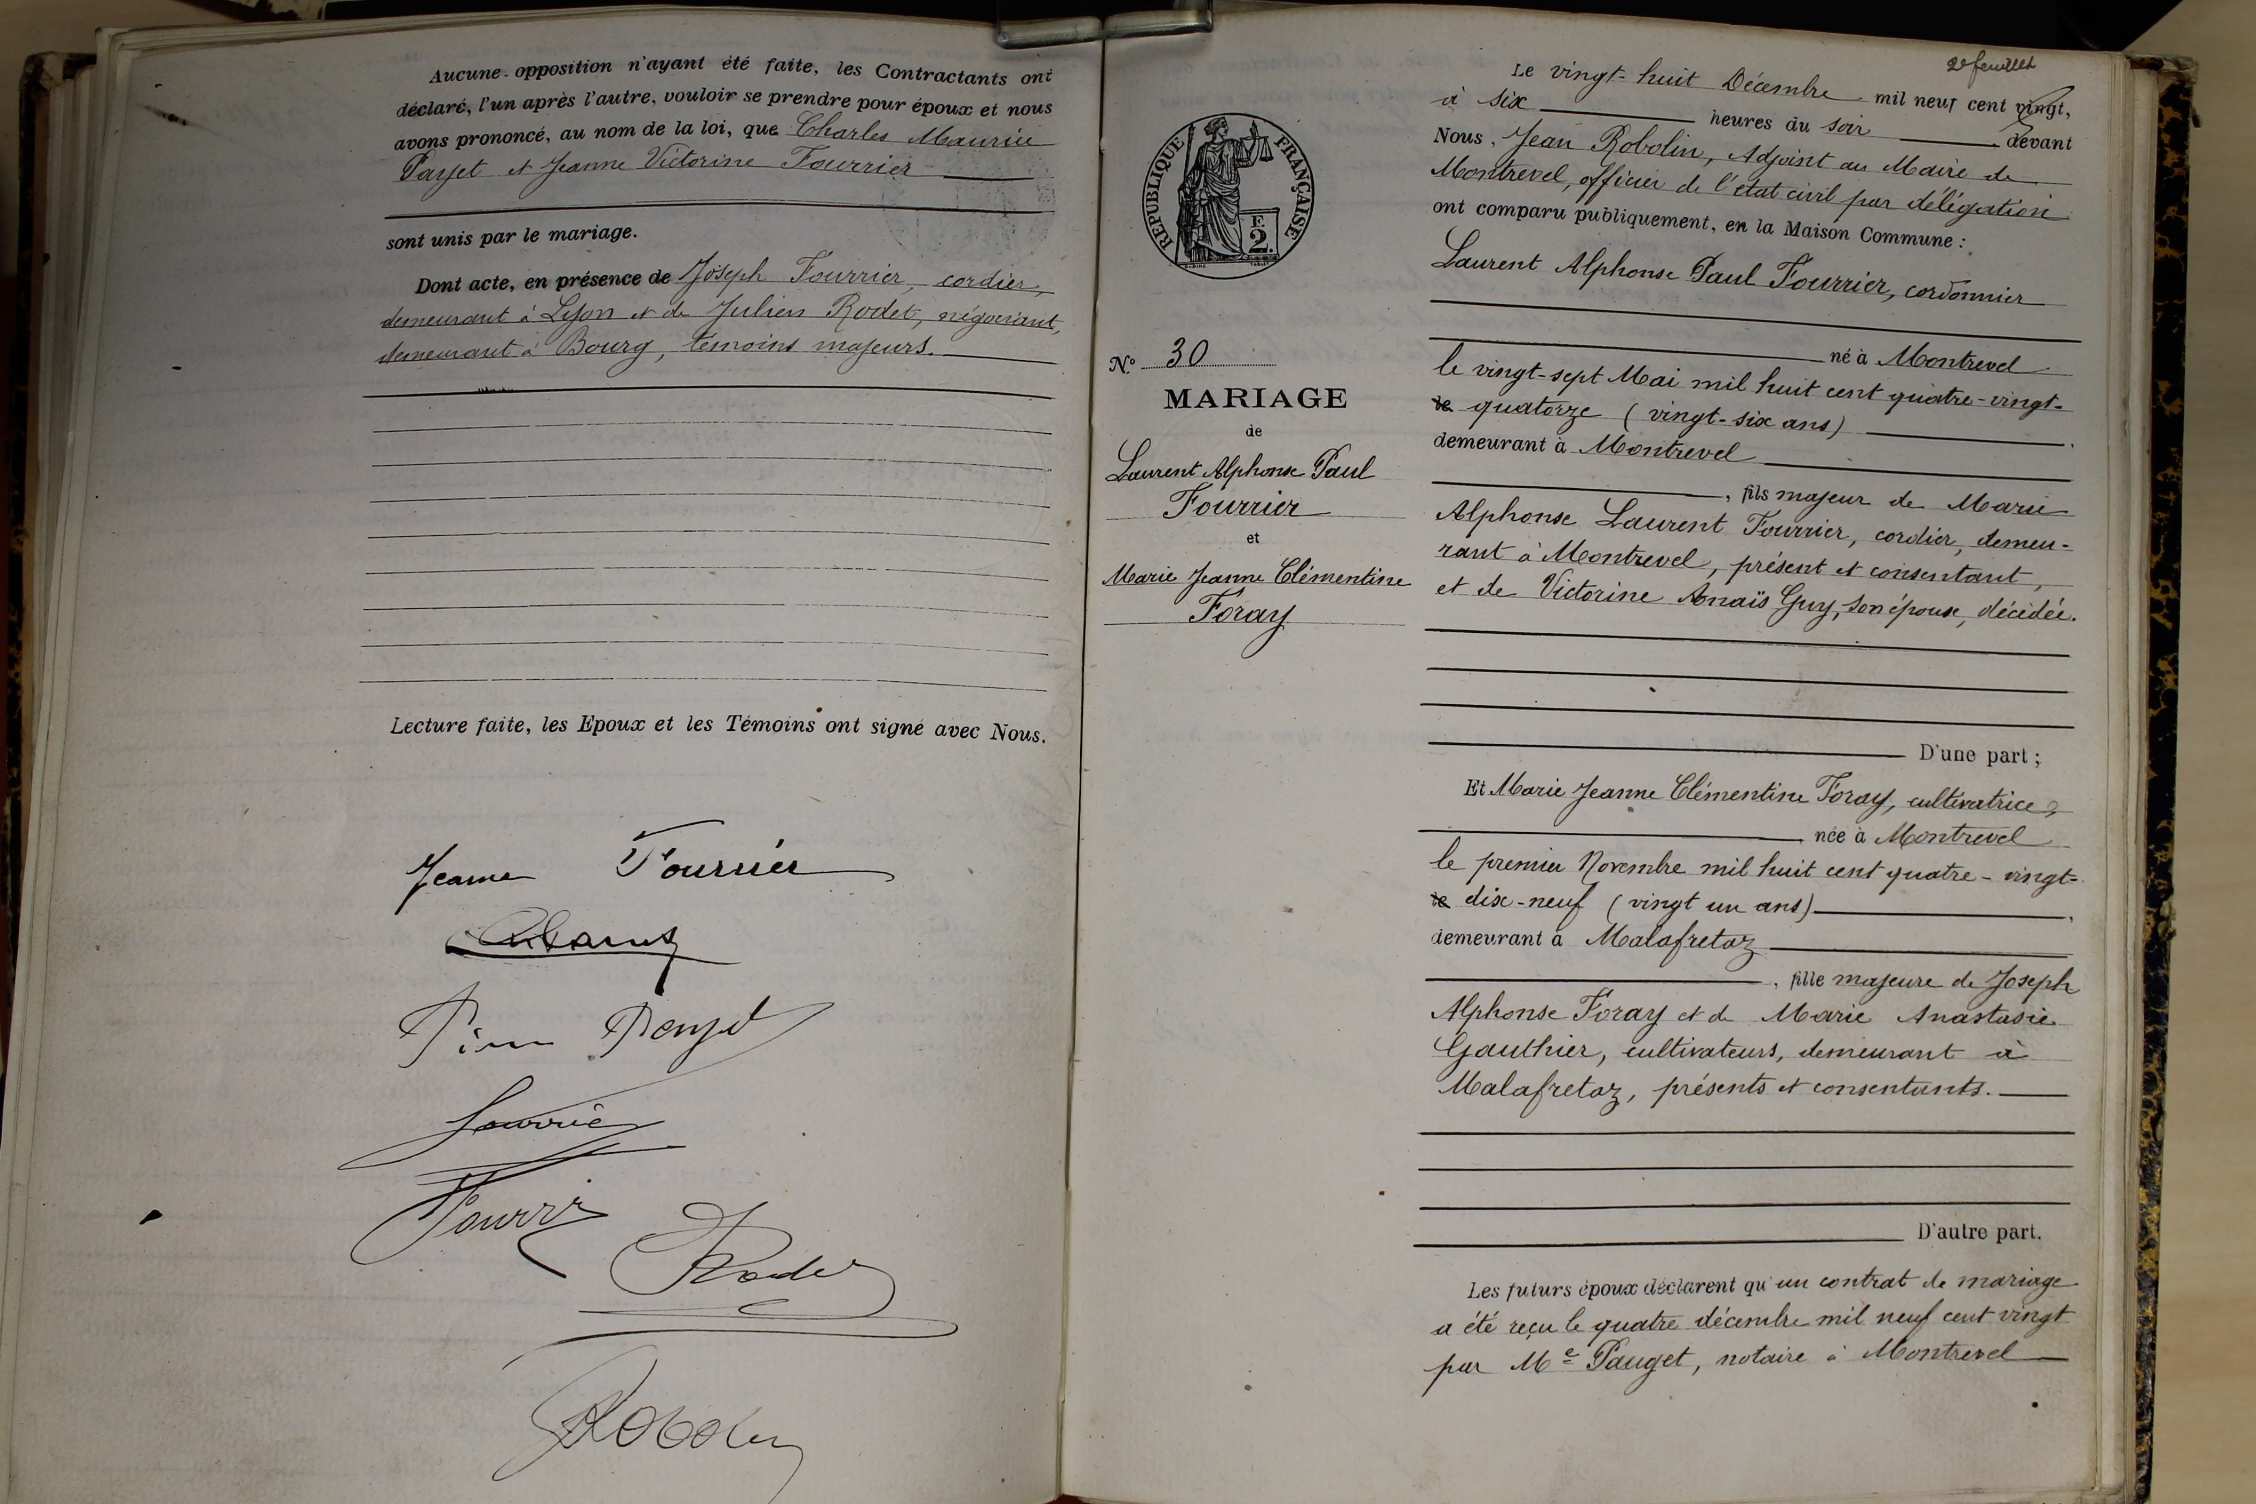 Aucune opposition n'ayant été faite, les Contractants ont
déclaré, l'un après l'autre, vouloir se prendre pour époux et nous
avons prononcé, au nom de la loi, que Charles Maurice
Payet et Jeanne Victorine Fourrier
sont unis par le mariage.
Dont acte, en présence de Joseph Fourrier, cordier,
demeurant à Lyon et de Julien Rodet, négociant,
demeurant à Bourg, témoins majeurs.
Lecture faite, les Epoux et les Témoins ont signé avec Nous.
Jeanne Fourrier
Fourrier
Fourrier
Rodet
Robolin
RÉPUBLIQUE FRANÇAISE
F.
2.
N.º 30
MARIAGE
de
Laurent Alphonse Paul
Fourrier
et
Marie Jeanne Clémentine
Foray
2e feuillet
Le vingt-huit Décembre mil neuf cent vingt,
à six heures du soir devant
Nous, Jean Robolin, Adjoint au Maire de
Montrevel, officier de l'état civil par délégation
ont comparu publiquement, en la Maison Commune :
Laurent Alphonse Paul Fourrier, cordonnier
né à Montrevel
le vingt-sept Mai mil huit cent quatre-vingt-
le quatorze (vingt-six ans)
demeurant à Montrevel
, fils majeur de Marie
Alphonse Laurent Fourrier, cordier, demeu-
rant à Montrevel, présent et consentant,
et de Victorine Anaïs Guy, son épouse, décédée.
D'une part ;
Et Marie Jeanne Clémentine Foray, cultivatrice,
née à Montrevel
le premier Novembre mil huit cent quatre-vingt-
le dix-neuf (vingt un ans),
demeurant à Malafretaz
, fille majeure de Joseph
Alphonse Foray et de Marie Anastasie
Gauthier, cultivateurs, demeurant à
Malafretaz, présents et consentants.
D'autre part.
Les futurs époux déclarent qu'un contrat de mariage
a été reçu le quatre décembre mil neuf cent vingt
par Me Pauget, notaire à Montrevel